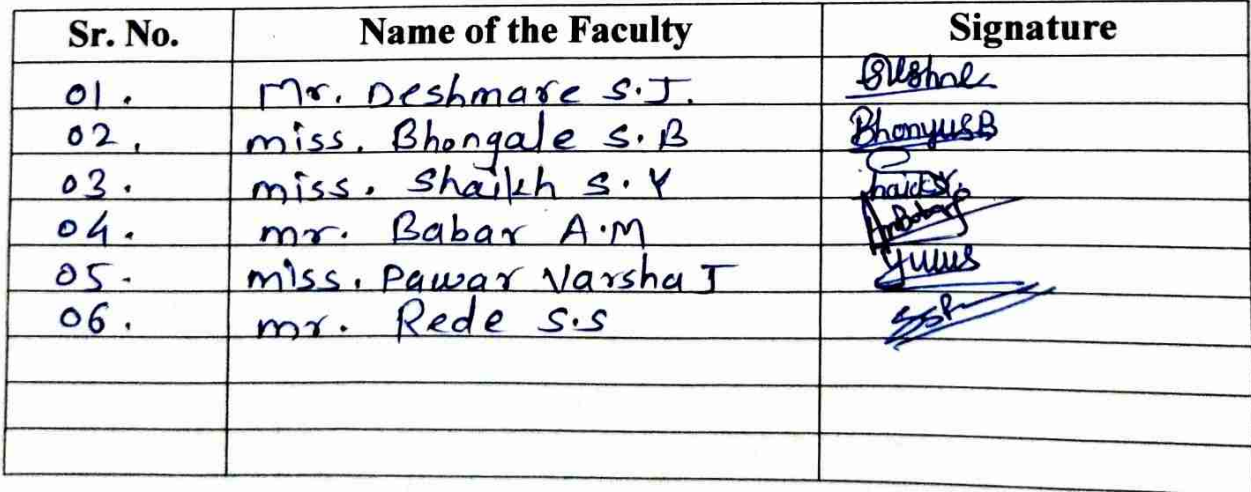 Sr. No. Name of the Faculty Signature
01. Mr. Deshmare S.J.
02. miss. Bhongale S.B
03. miss. Shaikh S.Y
04. mr. Babar A.M
05. miss. Pawar Varsha J
06. mr. Rede S.S